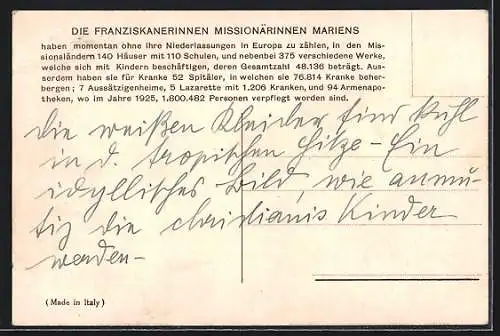 DIE FRANZISKANERINNEN MISSIONÄRINNEN MARIENS
haben momentan ohne ihre Niederlassungen in Europa zu zählen, in den Mis-
sionsländern 140 Häuser mit 110 Schulen, und nebenbei 375 verschiedene Werke,
welche sich mit Kindern beschäftigen, deren Gesamtzahl 48.136 beträgt. Aus-
serdem haben sie für Kranke 52 Spitäler, in welchen sie 76.814 Kranke beher-
bergen; 7 Aussätzigenheime, 5 Lazarette mit 1.206 Kranken, und 94 Armenapo-
theken, wo im Jahre 1925, 1.800.482 Personen verpflegt worden sind.
die weißen Kleider sind kühl
in d. tropischen Hitze - Ein
idyllisches Bild, wie anmu-
tig die Kinder
werden -
(Made in Italy)